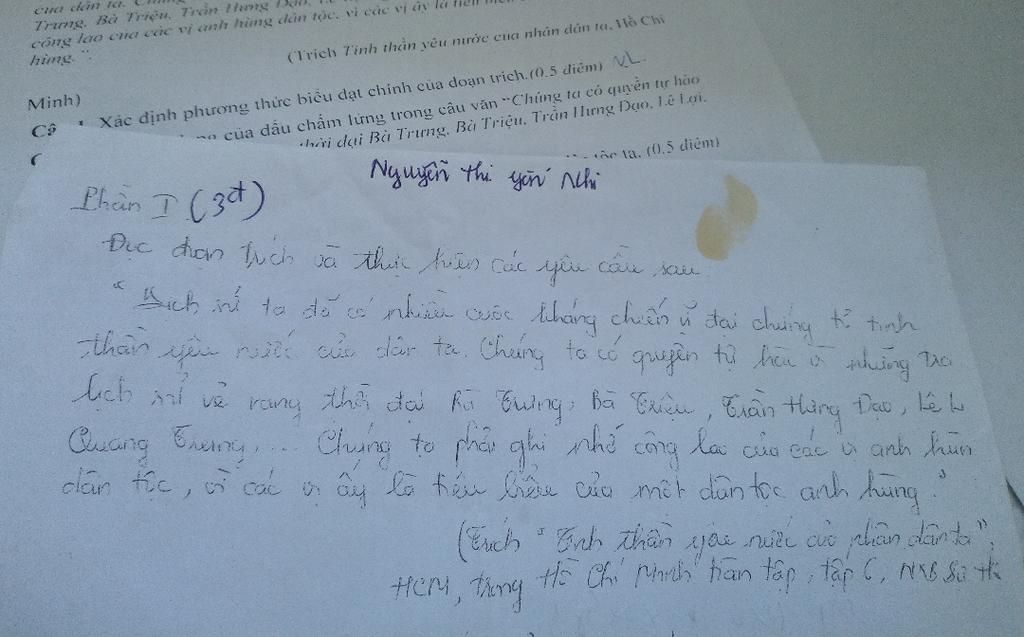 của dân ta.
Trưng, Bà Triệu, Trần Hưng Đạo,
công lao của các vị anh hùng dân tộc, vì các vị ấy là tiêu
hùng.”.
(Trích Tinh thần yêu nước của nhân dân ta, Hồ Chí
Minh)
Xác định phương thức biểu đạt chính của đoạn trích.(0.5 điểm) NL
của dấu chấm lửng trong câu văn “Chúng ta có quyền tự hào
thời đại Bà Trưng, Bà Triệu, Trần Hưng Đạo, Lê Lợi,
ta. (0.5 điểm)
Nguyễn Thi Yến Nhi
Phần I (3đ)
Đọc đoạn trích và thực hiện các yêu cầu sau
“Lịch sử ta đã có nhiều cuộc kháng chiến vĩ đại chứng tỏ tinh
thần yêu nước của dân ta. Chúng ta có quyền tự hào vì những tra
lịch sử vẻ vang thời đại Bà Trưng, Bà Triệu, Trần Hưng Đạo, Lê L
Quang Trung,... Chúng ta phải ghi nhớ công lao của các vị anh hùn
dân tộc, vì các vị ấy là tiêu biểu của một dân tộc anh hùng.”
(Trích “Tinh thần yêu nước của nhân dân ta”,
HCM, trong Hồ Chí Minh toàn tập, tập 6, NXB Sự th